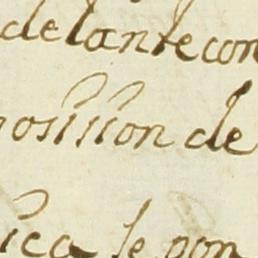 delante con
posission de
ica se pon